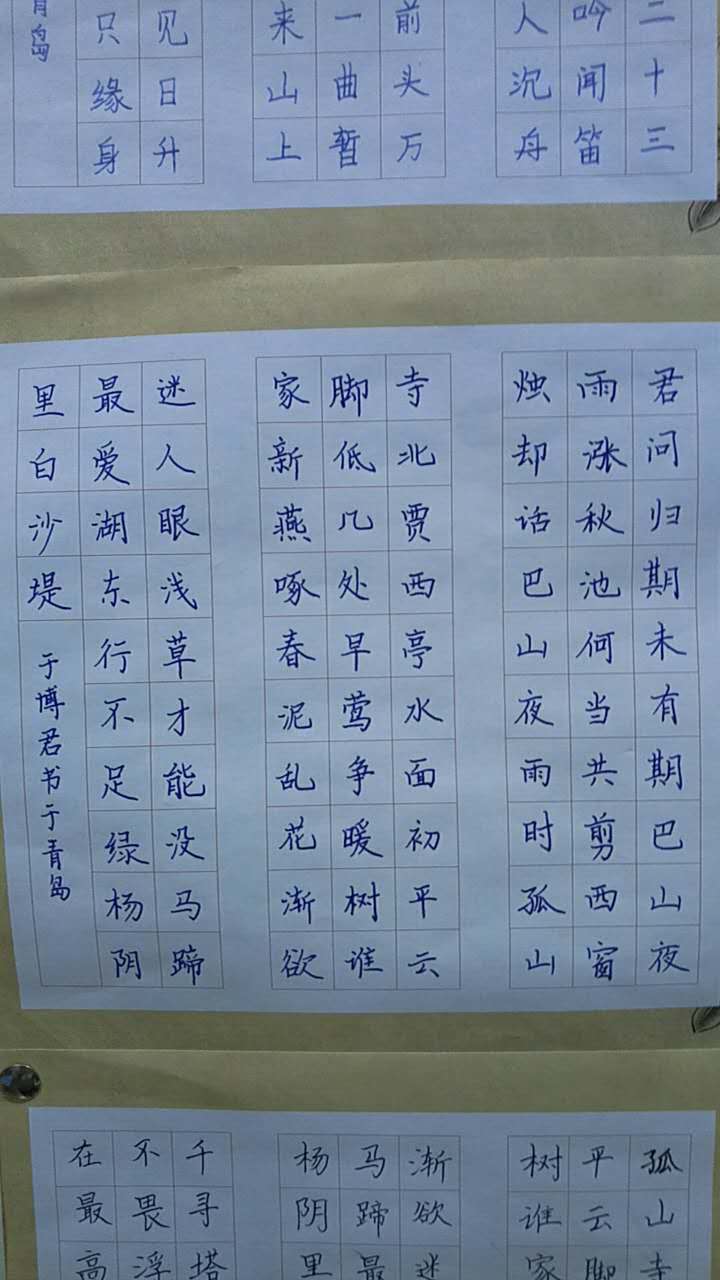 二十三
吟闻笛
人沉舟
前头万
一曲暂
来山上
见日升
只缘身
青岛
君问归期未有期巴山夜
雨涨秋池何当共剪西窗
烛却话巴山夜雨时孤山
寺北贾西亭水面初平云
脚低几处早莺争暖树谁
家新燕啄春泥乱花渐欲
迷人眼浅草才能没马蹄
最爱湖东行不足绿杨阴
里白沙堤
于博君书于青岛
孤山寺
平云脚
树谁家
渐欲迷
马蹄最
杨阴里
千寻塔
不畏浮
在最高